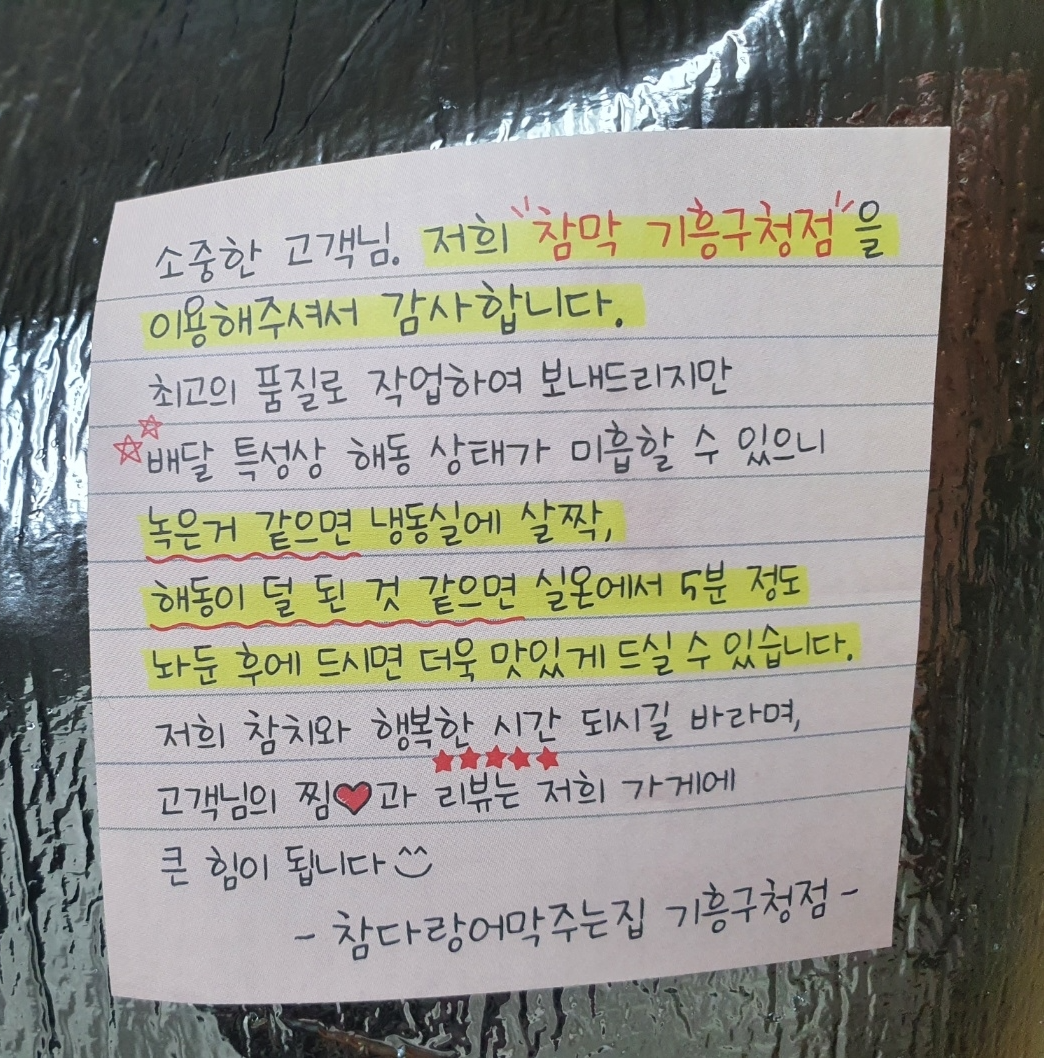 소중한 고객님. 저희 "참막 기흥구청점"을
이용해주셔서 감사합니다.
최고의 품질로 작업하여 보내드리지만
☆☆배달 특성상 해동 상태가 미흡할 수 있으니
녹은거 같으면 냉동실에 살짝,
해동이 덜 된 것 같으면 실온에서 5분 정도
놔둔 후에 드시면 더욱 맛있게 드실 수 있습니다.
저희 참치와 행복한 시간 되시길 바라며,
★★★★★
고객님의 찜♥과 리뷰는 저희 가게에
큰 힘이 됩니다^^
- 참다랑어막주는집 기흥구청점 -